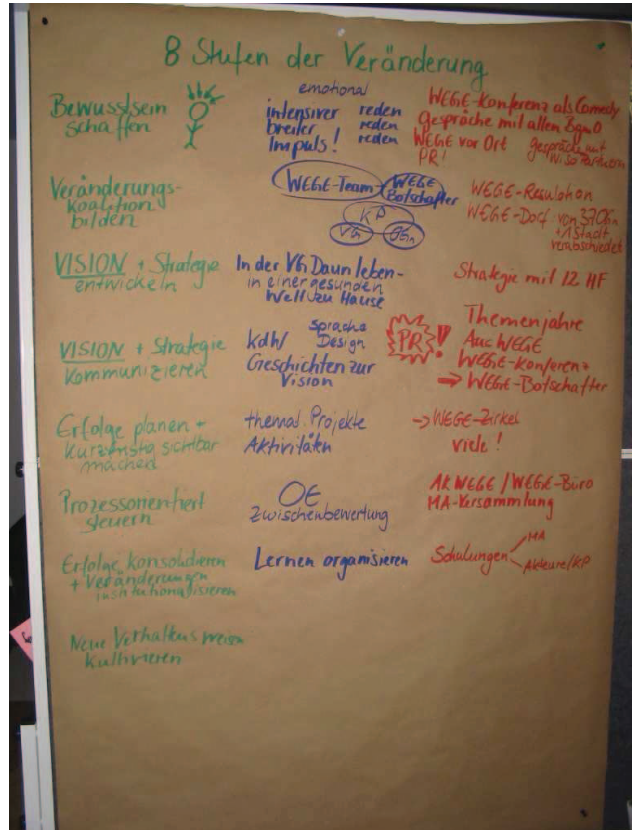 8 Stufen der Veränderung
Bewusstsein
schaffen
emotional
intensiver reden
breiter reden
Impuls! reden
WEGE-Konferenz als Comedy
gespräche mit allen BgmO
WEGE vor Ort
PR!
gespräche mit
WiSo Partnern
Veränderungs-
koalition
bilden
WEGE-Team
WEGE
Botschafter
KP
VG
OGn
WEGE-Resolution
WEGE-Dorf von 37 OGn
+ 1 Stadt
verabschiedet
VISION + Strategie
entwickeln
In der VG Daun leben-
in einer gesunden
Welt zu Hause
Strategie mit 12 HF
VISION + Strategie
Kommunizieren
kdW
Sprache
Design
Geschichten zur
Vision
PR!
Themenjahre
WEGE-Konferenz
→ WEGE-Botschafter
Erfolge planen +
kurzfristig sichtbar
machen
themat. Projekte
Aktivitäten
→ WEGE-Zirkel
viele!
Prozessorientiert
steuern
OE
Zwischenbewertung
AK WEGE / WEGE-Büro
MA-Versammlung
Erfolge konsolidieren
+ Veränderungen
institutionalisieren
Lernen organisieren
Schulungen
MA
Akteure/KP
Neue Verhaltensweisen
Kultivieren